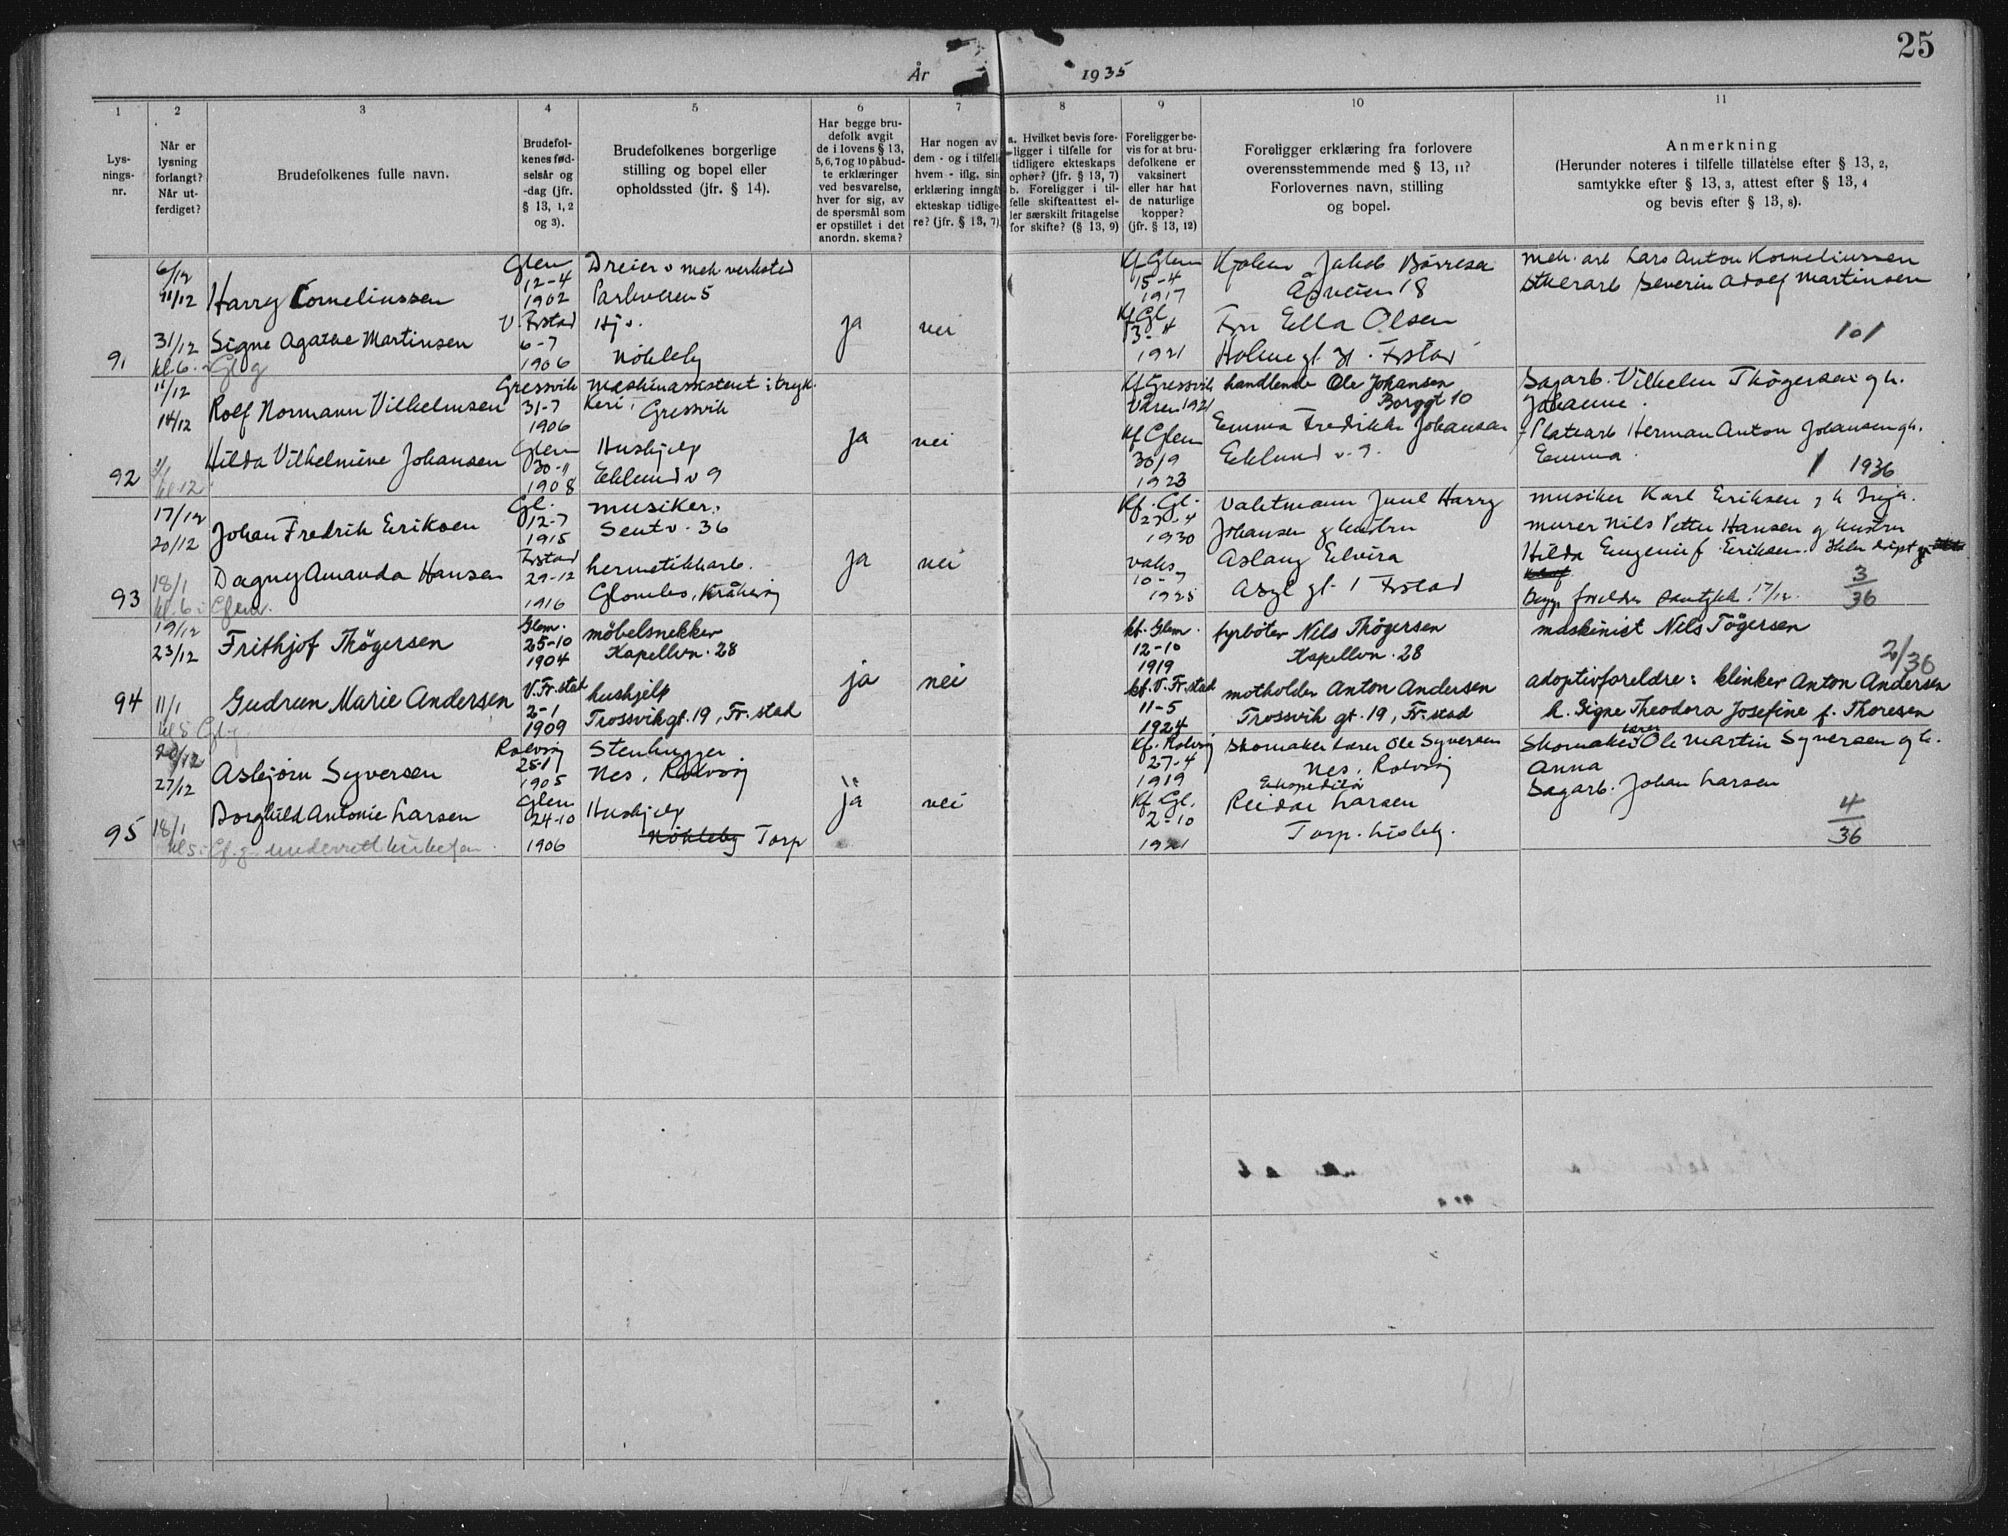 25
År 1935
1 2 3 4 5 6 7 8 9 10 11
Lysningsnr.
Når er lysning forlangt? Når utferdiget?
Brudefolkenes fulle navn.
Brudefolkenes fødselsår og -dag (jfr. § 13, 1, 2 og 3).
Brudefolkenes borgerlige stilling og bopel eller opholdssted (jfr. § 14).
Har begge brudefolk avgit de i lovens § 13, 5, 6, 7 og 10 påbudte erklæringer ved besvarelse, hver for sig, av de spørsmål som er opstillet i det anordn. skema?
Har nogen av dem - og i tilfelle hvem - iflg. sin erklæring inngått ekteskap tidligere? (jfr. § 13, 7).
a. Hvilket bevis foreligger i tilfelle for tidligere ekteskaps ophør? (jfr. § 13, 7) b. Foreligger i tilfelle skifteattest eller særskilt fritagelse for skifte? (§ 13, 9)
Foreligger bevis for at brudefolkene er vaksinert eller har hat de naturlige kopper? (jfr. § 13, 12)
Foreligger erklæring fra forlovere overensstemmende med § 13, 11? Forlovernes navn, stilling og bopel.
Anmerkning
(Herunder noteres i tilfelle tillatelse efter § 13, 2, samtykke efter § 13, 3, attest efter § 13, 4 og bevis efter § 13, 8).
91
6/12
11/12
31/12
kl. 6. Gl g
Harry Corneliussen
Signe Agathe Martinsen
Glem
12-4
1902
V. Frstad
6-7
1906
Dreier v mek verksted
Parkveien 5
Hj v.
Nökleby
ja
nei
Kf Glem
15-4
1917
Kf Gl
3-4
1921
Jakob Börresen
Åsveien 18
Fru Ella Olsen
Holme gt 31. Frstad
Mek. arb Lars Anton Korneliussen
Severin Adolf Martinsen
101
92
11/12
14/12
kl 12
Rolf Normann Vilhelmsen
Hilda Vilhelmine Johansen
Gressvik
31-7
1906
Glem
30-11
1908
Maskinassistent i trykkeri,
Gressvik
Hushjelp
Eklund v 9
ja
nei
Kf Gressvik
Våren 1921
Kf Glem
30/9
1923
handlende Ole Johansen
Borggt 10
Emma Fredikke Johansen
Eklund v. 9.
Sagarb. Vilhelm Thögersen g h.
Johanne.
Platearb Herman Anton Johansen g h.
Emma.
1 1936
93
17/12
20/12
18/1
kl. 6 i Glem.
Johan Fredrik Eriksen
Dagny Amanda Hansen
Gl.
12-7
1915
Frstad
29-12
1916
musiker,
Sentv. 36
hermetikkarb.
Glombo, Kråkeröy
ja
nei
Kf. Gl.
27-4
1930
vaks.
10-7
1925
Vaktmann Juul Harry
Johansen g hustru
Aslaug Elvira
Asyl gt. 1 Frstad
musiker Karl Eriksen g h Inga.
murer Nils Petter Hansen g hustru
Hilda Eugenie f. Eriksen. Ikke döpt
Begge foreldre samtykk. 17/12.
3/36
94
19/12
23/12
11/1
kl 5 Gl. g.
Frithjof Thögersen
Gudrun Marie Andersen
Glem.
25-10
1904
V. Fr.stad
2-1
1909
möbelsnekker
Kapellvn. 28
hushjelp
Trossvikgt. 19, Fr.stad
ja
nei
kf. Glem.
12-10
1919
kf. V. Fr.stad
11-5
1924
fyrböter Nils Thögersen
Kapellvn. 28
motholder Anton Andersen
Trossvik gt. 19, Fr.stad
maskinist Nils Tögersen
2/36
adoptivforeldre: klinker Anton Andersen
h. Signe Theodora Josefine f. Thoresen
95
20/12
27/12
18/1
kl 5 i Gl. g. underrett kirketjen.
Asbjörn Syversen
Borghild Antonie Larsen
Rolvsöy
25-1
1905
Glem
24-10
1906
Stenhugger
Nes, Rolvsöy
Hushjelp
Nökleby Torp
ja
nei
Kf. Rolvsöy
27-4
1919
Kf. Gl.
2-10
1921
Skomaker Lærer Ole Syversen
Nes, Rolvsöy
Ekspeditör
Reidar Larsen
Torp. Lisleby.
Skomaker lærer Ole Martin Syversen g h.
Anna
Sagarb. Johan Larsen
4/36